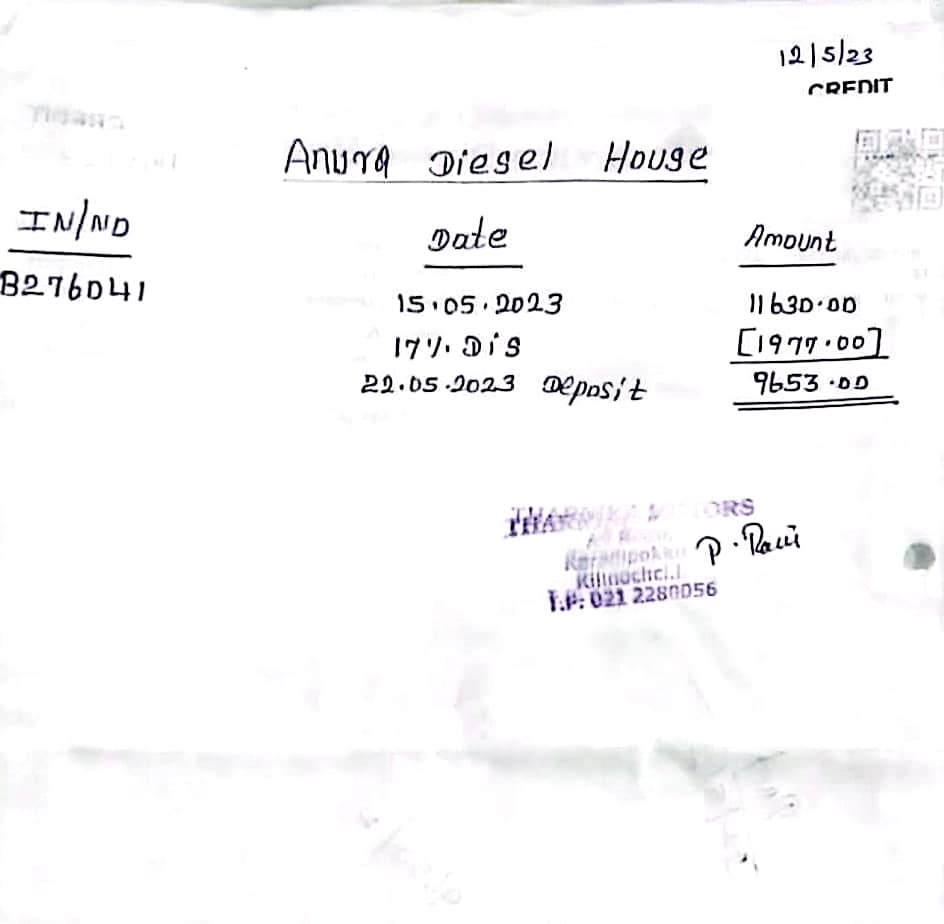 12/5/23
CREDIT
Anura Diesel House
IN/NO Date Amount
B276041 15.05.2023 11630.00
17% Dis [1977.00]
22.05.2023 Deposit 9653.00
MOTORS
P. Ravi
Kilinochchi
T.P: 021 2280056